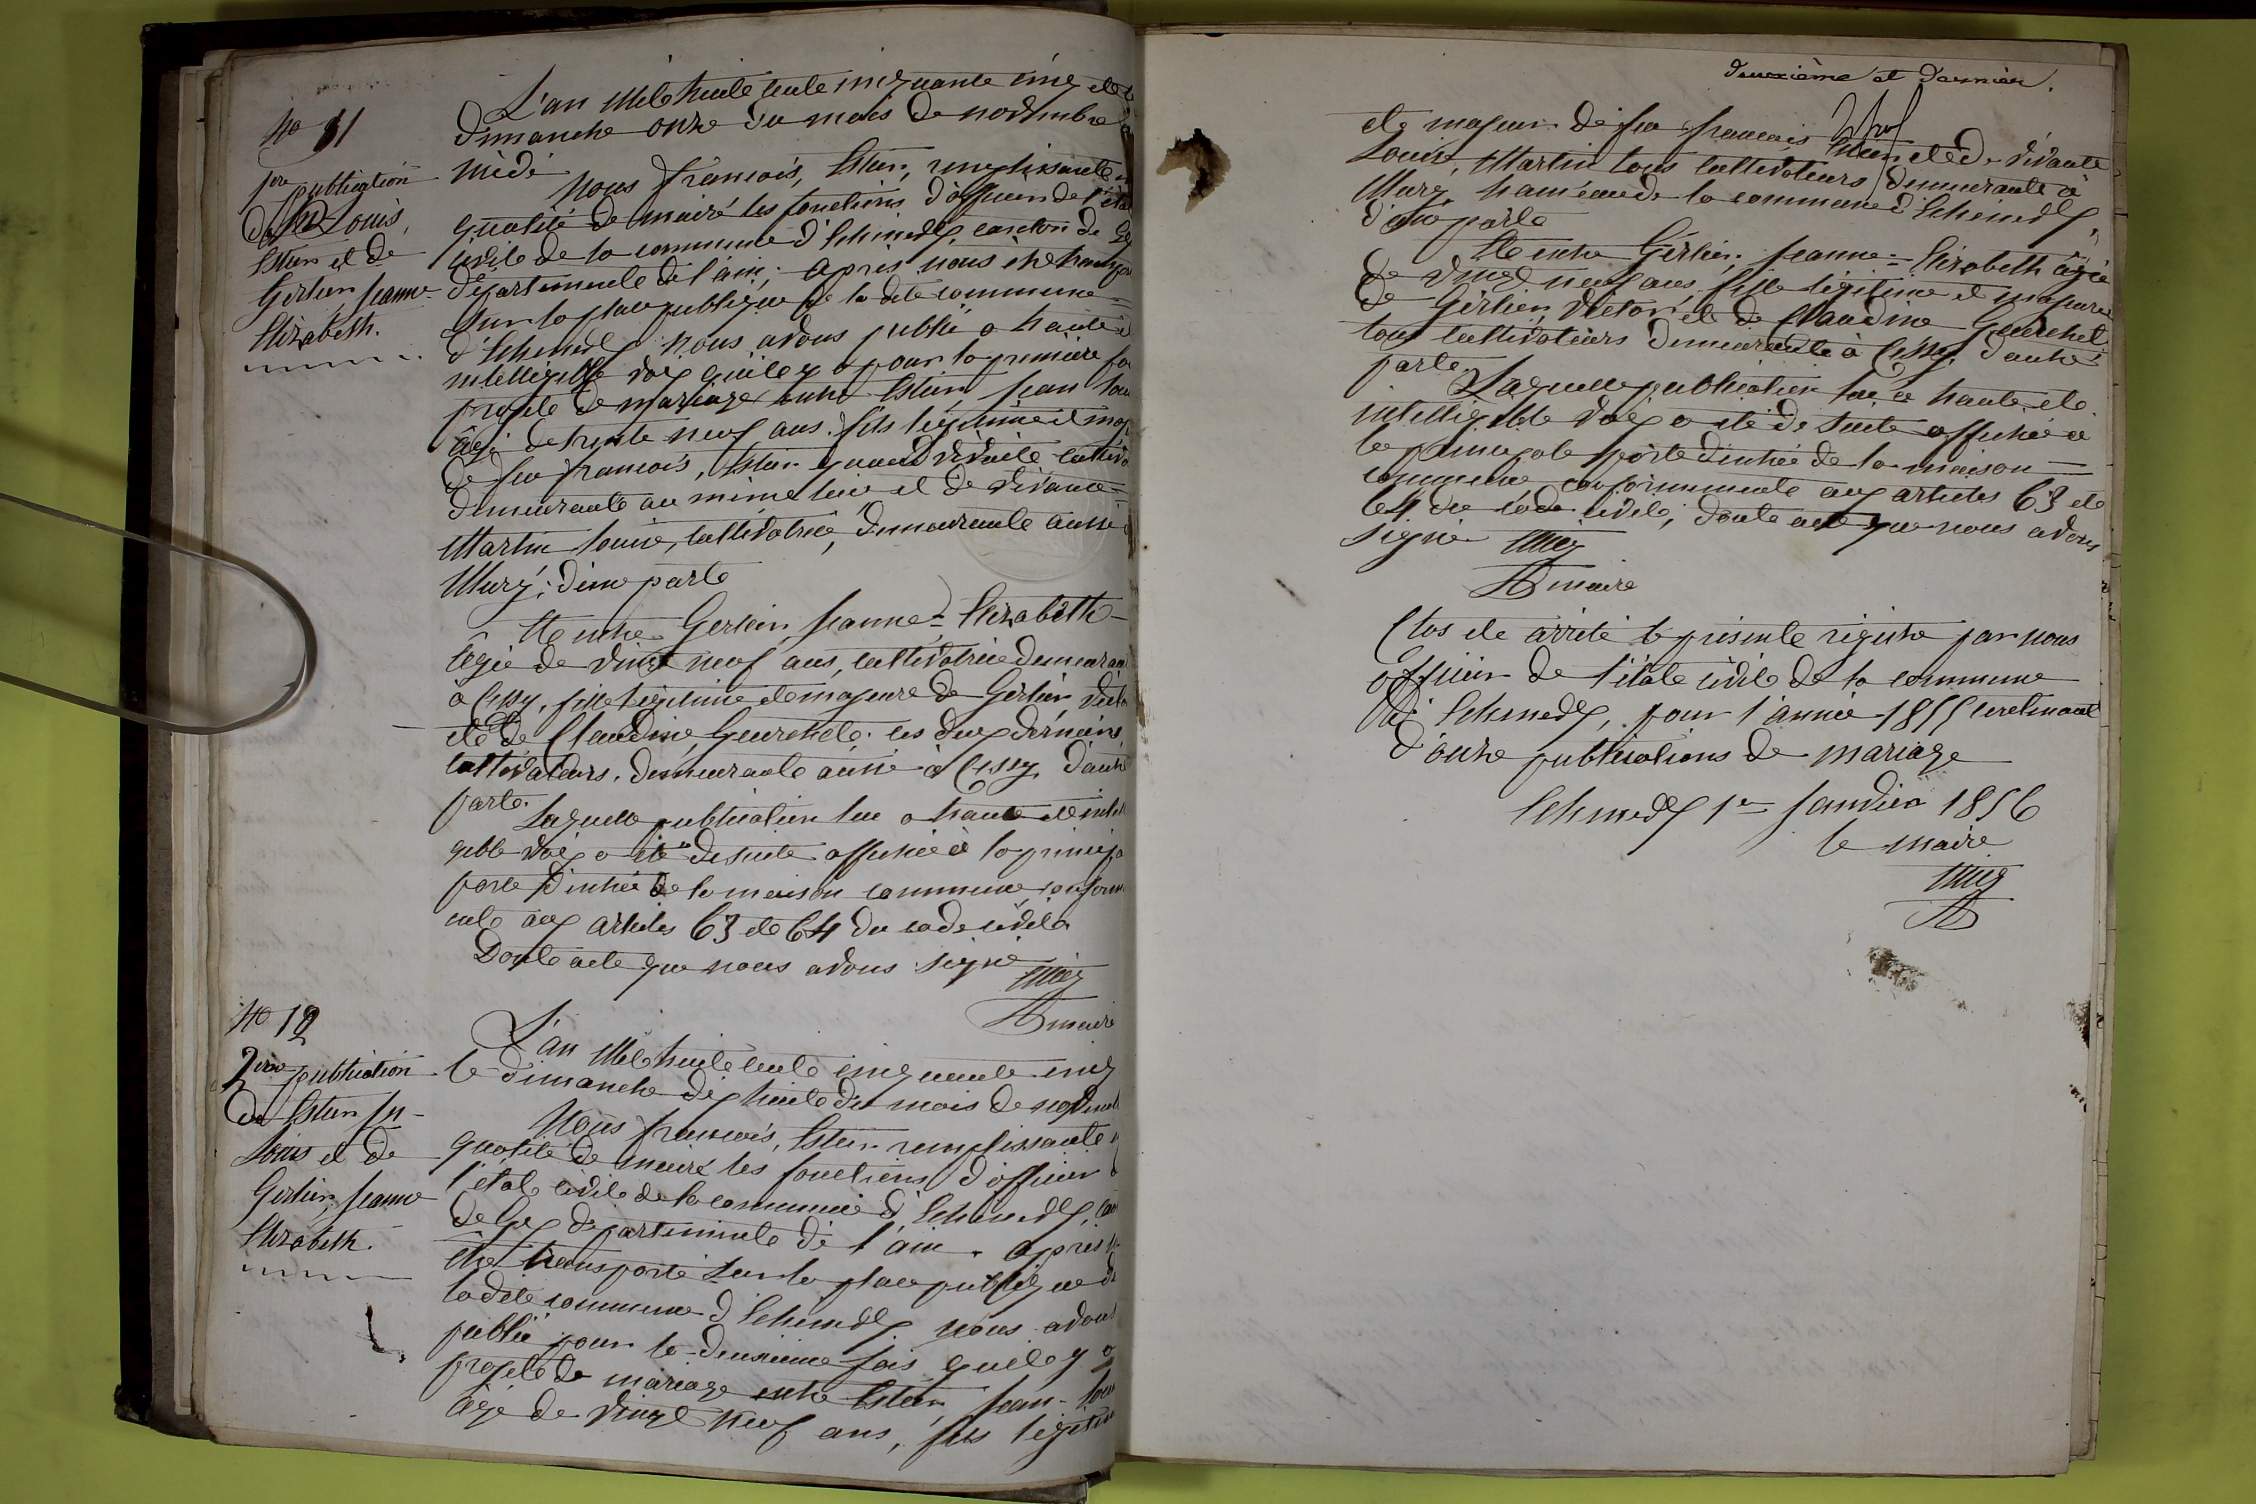 No 11
1ere publication
de Jn Louis,
Estier et de
Gerlier, Jeanne-
Elizabeth.
L'an mil huit cent cinquante cinq et le
dimanche onze du mois de novembre à
midi
Nous françois, Estier, remplissant en
qualité de maire les fonctions d'officier de l'état
civil de la commune d'Echenevex, canton de Gex
département de l'ain; après nous être transporté
sur la place publique de la dite commune
d'Echenevex nous avons publié a haute et
intelligible voix qu'il y a pour la première fois
projet de mariage entre Estier, Jean Louis
âgé de trente neuf ans, fils légitime et majeur
de feu françois, Estier quand vivait cultivateur
demeurant au même lieu et de vivante
Martin Louise, cultivatrice, demeurante aussi à
Mury; d'une part
Et entre Gerlier, Jeanne= Elizabeth
âgée de vingt neuf ans, cultivatrice demeurant
à Cessy, fille légitime et majeure de Gerlier, Victor
et de Claudine, Guerchet: les deux derniers
cultivateurs, demeurant aussi à Cessy, d'autre
part.
Laquelle publication lue a haute et intelli
gible voix a été de suite affichée à la principale
porte d'entrée de la maison commune, conformé
ment aux articles 63 et 64 du code civil
Dont acte que nous avons signé
maire
No 12
2eme publication
de Estier Jn
Louis et de
Gerlier, Jeanne
Elizabeth.
L'an mil huit cent cinquante cinq
le dimanche dix huit du mois de novembre
Nous françois, Estier remplissant en
qualité de maire les fonctions d'officier de
l'état civil de la commune d'Echenevex, canton
de Gex département de l'ain. après nous
être transporté sur la place publique de
la dite commune d'Echenevex nous avons
publié pour la deuxième fois qu'il y a
projet de mariage entre Estier, Jean-Louis
âgé de vingt neuf ans, fils légitime
deuxième et dernier.
et majeur de feu françois Estier et de vivante
Louise, Martin tous cultivateurs demeurant à
Mury, hameau de la commune d'Echenevex,
d'une part
Et entre Gerlier, Jeanne= Elizabeth âgée
de vingt neuf ans, fille légitime et majeure
de Gerlier, Victor et de Claudine Guerchet
tous cultivateurs demeurant à Cessy, d'autre
part.
Laquelle publication lue a haute et
intelligible voix a été de suite affichée à
la principale porte d'entrée de la maison
commune conformément aux articles 63 et
64 du code civil, dont acte que nous avons
signé
maire
Clos et arrêté le présent registre par nous
officier de l'état civil de la commune
d'Echenevex, pour l'année 1855 contenant
douze publications de mariage
Echenevex 1er Janvier 1856
le maire